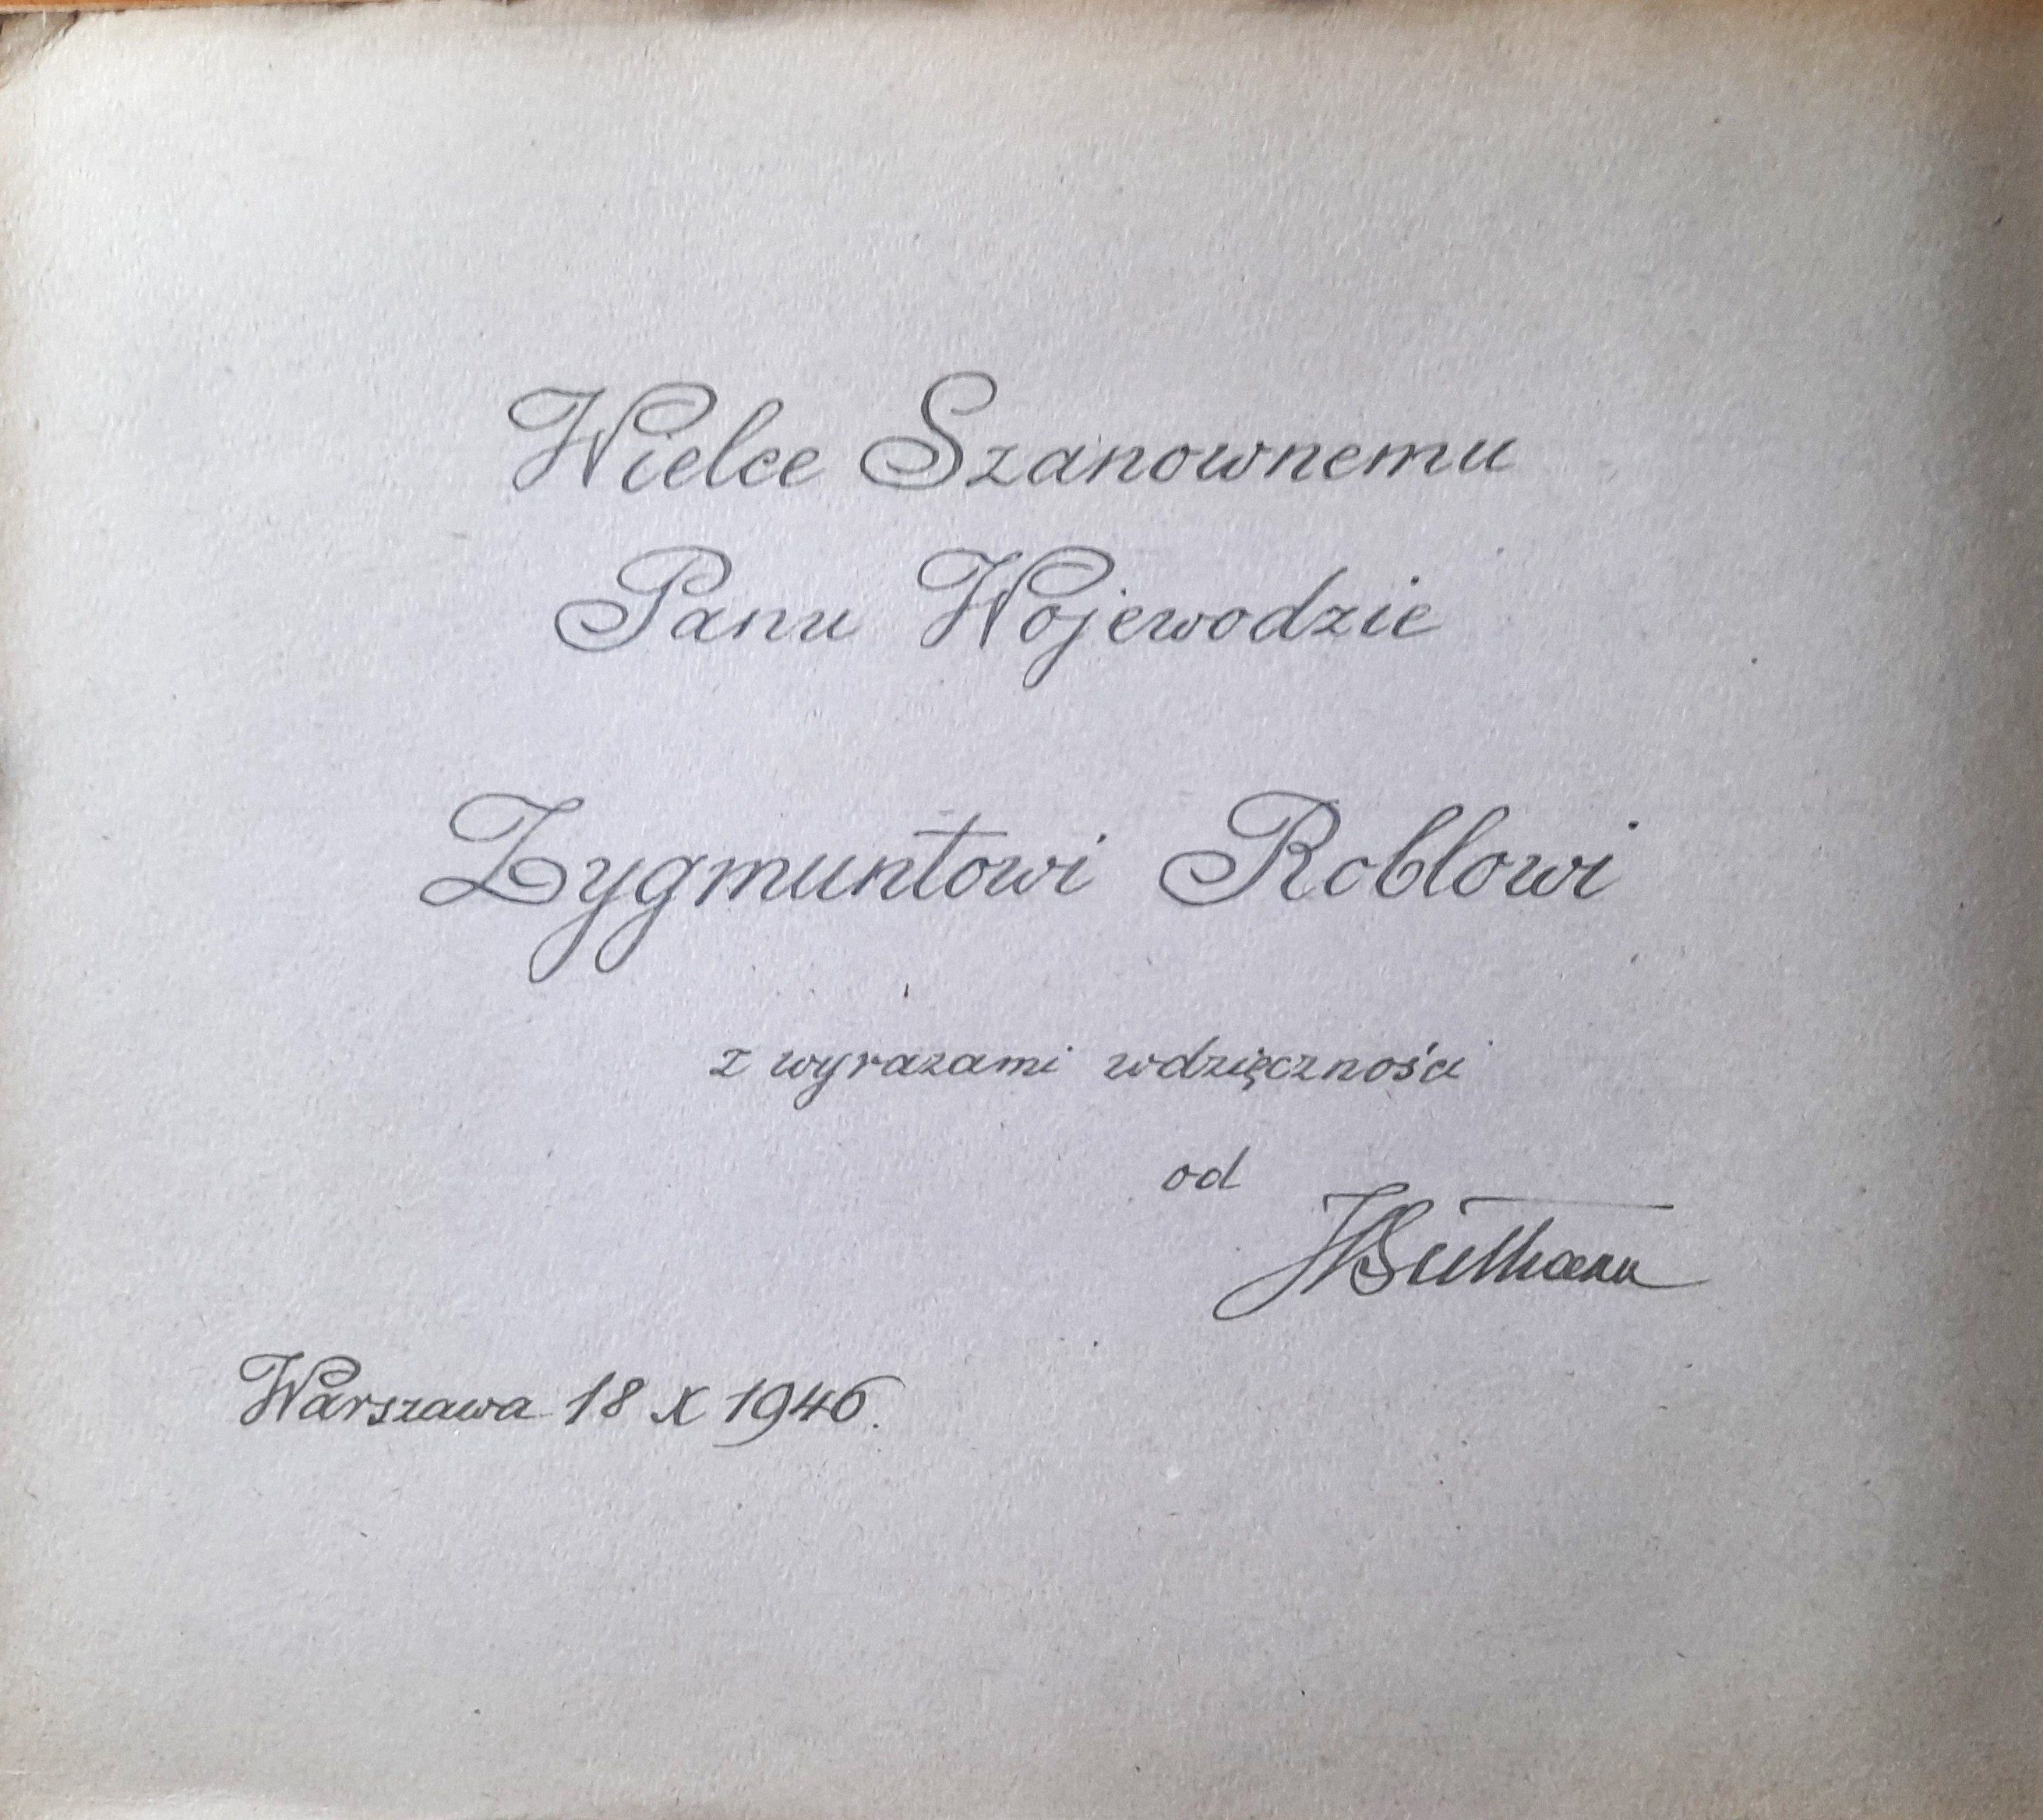 Wielce Szanownemu
Panu Wojewodzie
Zygmuntowi Roblowi
z wyrazami wdzięczności
od
Warszawa 18 X 1946.